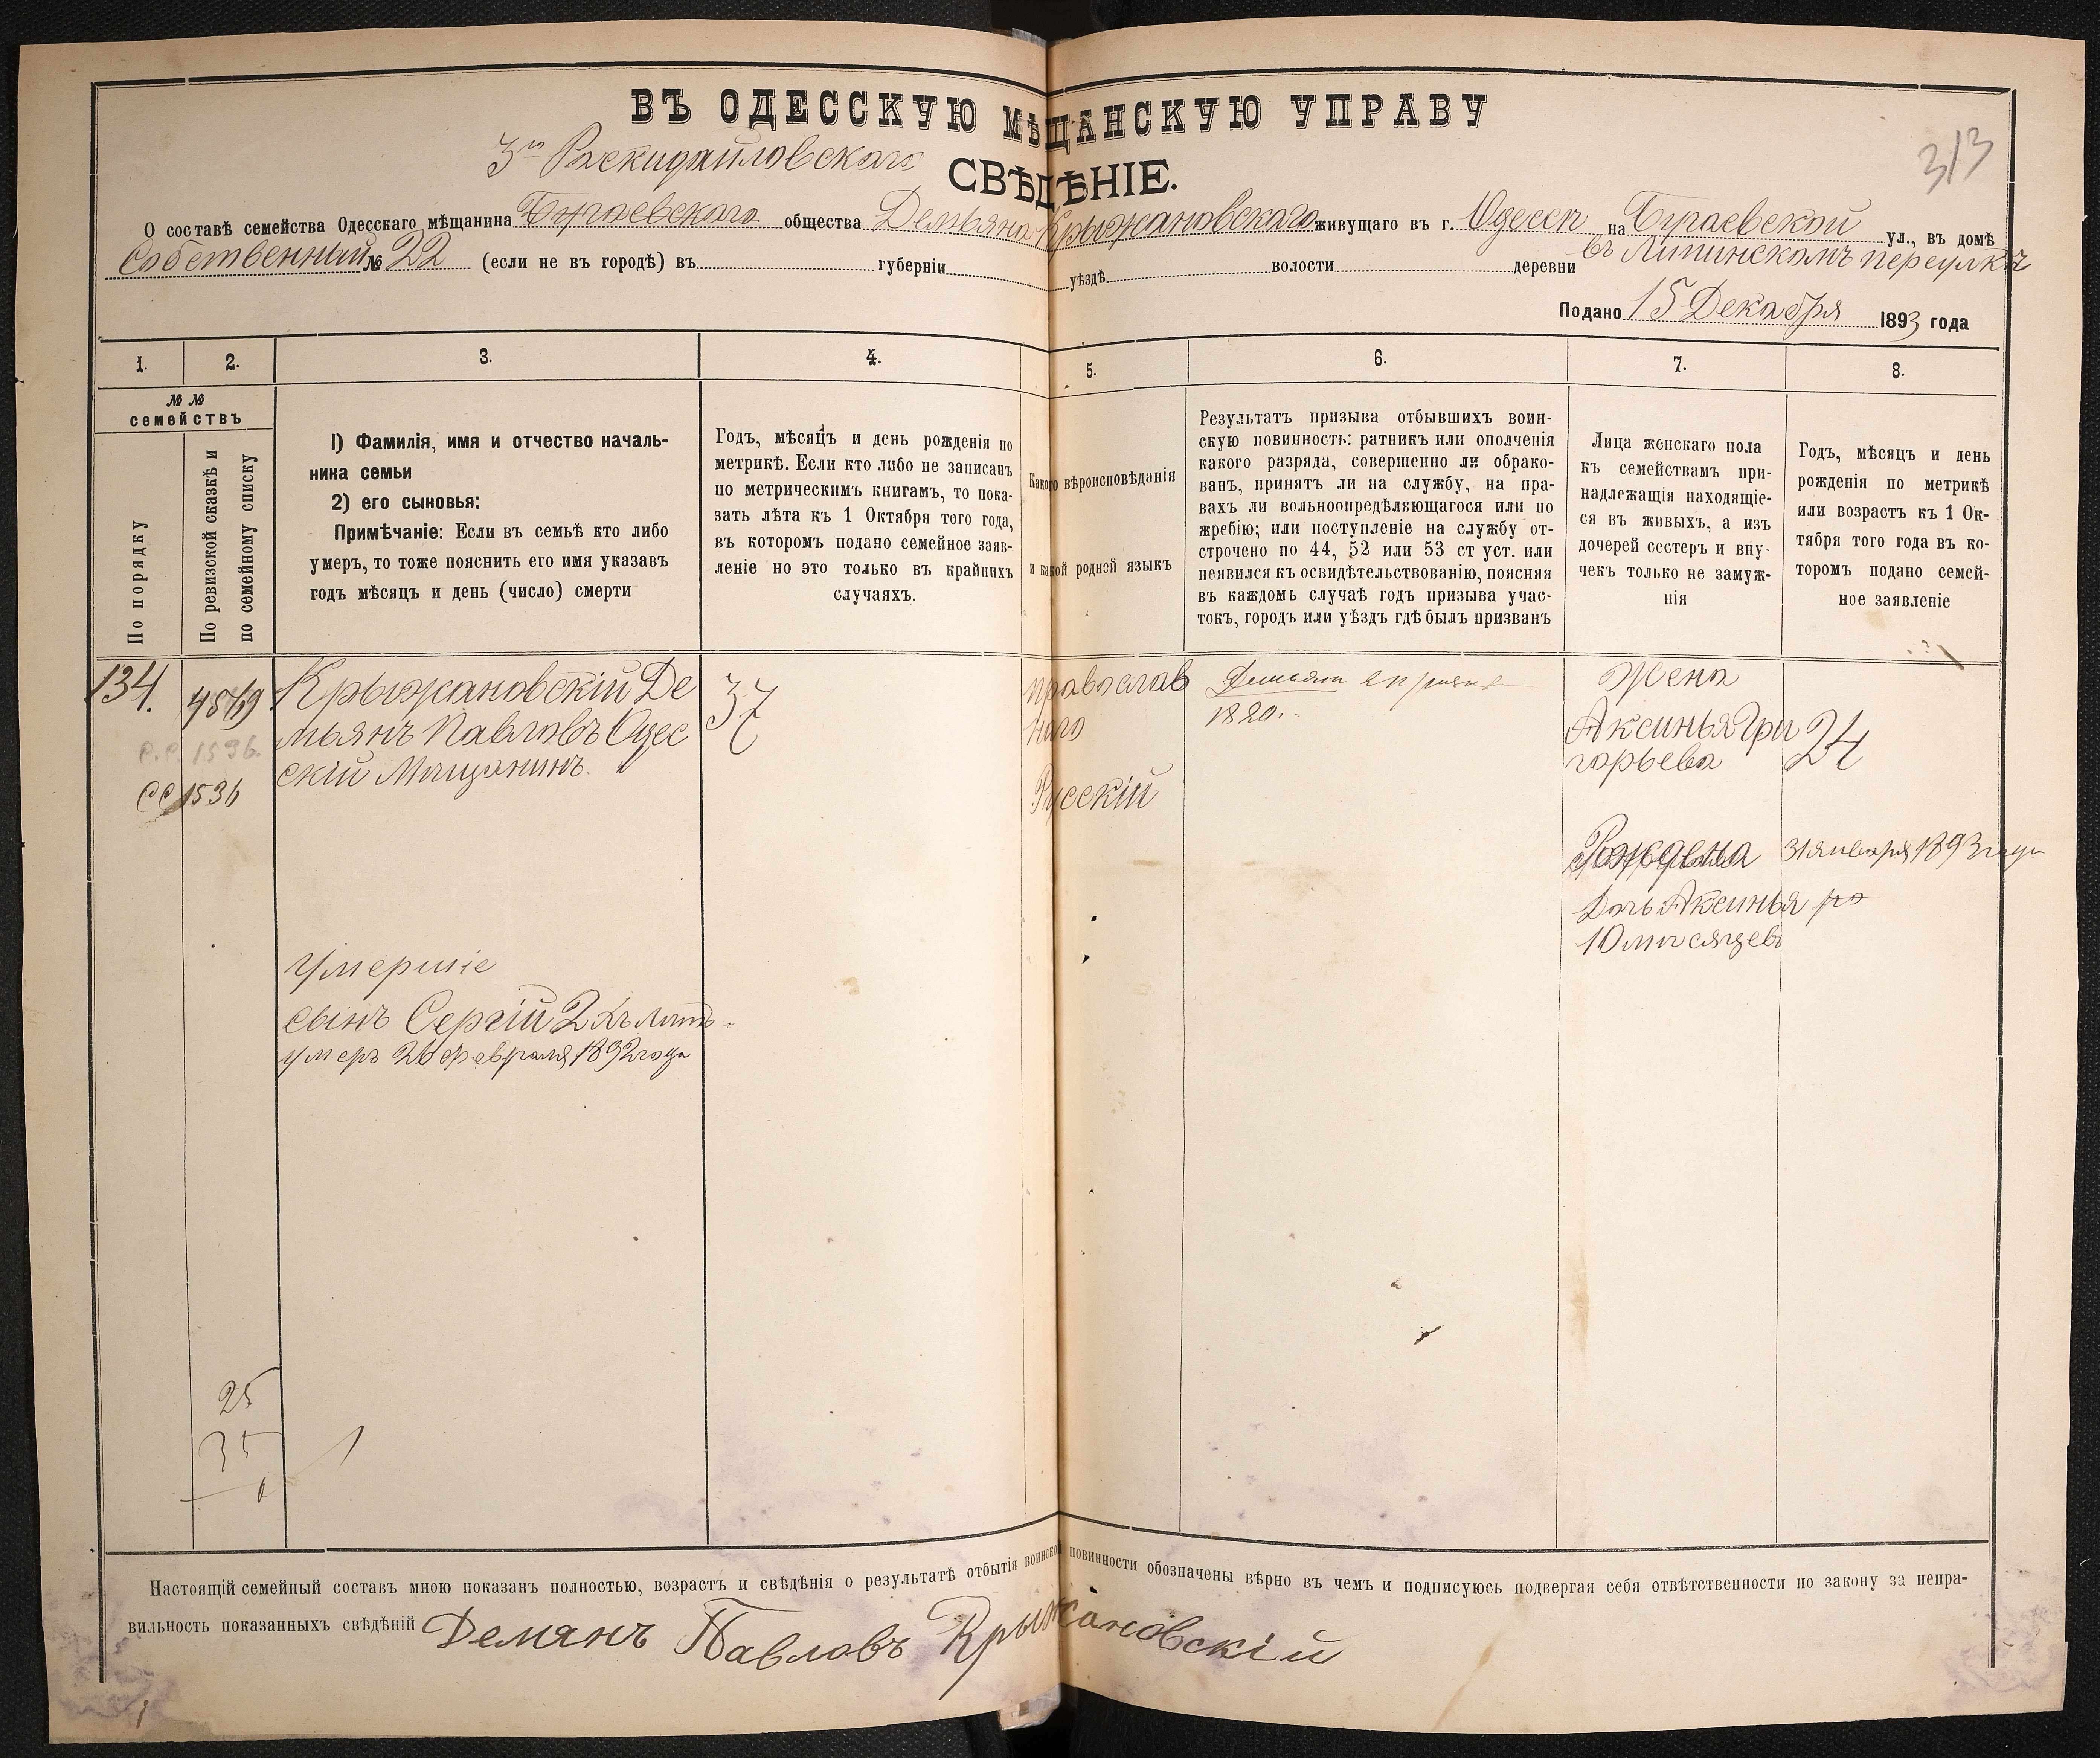 ВЪ ОДЕССКУЮ МѢЩАНСКУЮ УПРАВУ
3го Раскидайловскаго
СВѢДѢНІЕ.
313
О составѣ семейства Одесскаго мѣщанина Бугаевскаго общества Демьяна Крыжановскаго живущаго въ г. Одессѣ на Бугаевской ул., въ домѣ
Собственный № 22 (если не въ городѣ) въ губерніи уѣздѣ волости деревни въ Липинскомъ переулкѣ
Подано 15 Декабря 1893 года
1. 2. 3. 4. 5. 6. 7. 8.
№ №
семействъ
По порядку
По ревизской сказкѣ и
по семейному списку
1) Фамилія, имя и отчество началь-
ника семьи
2) его сыновья:
Примѣчаніе: Если въ семьѣ кто либо
умеръ, то тоже пояснить его имя указавъ
годъ мѣсяцъ и день (число) смерти
Годъ, мѣсяцъ и день рожденія по
метрикѣ. Если кто либо не записанъ
по метрическимъ книгамъ, то пока-
зать лѣта къ 1 Октября того года,
въ которомъ подано семейное заяв-
леніе но это только въ крайнихъ
случаяхъ.
Какого вѣроисповѣданія
и какой родной языкъ
Результатъ призыва отбывшихъ воин-
скую повинность: ратникъ или ополченія
какого разряда, совершенно ли обрако-
ванъ, принятъ ли на службу, на пра-
вахъ ли вольноопредѣляющагося или по
жребію; или поступленіе на службу от-
строчено по 44, 52 или 53 ст уст. или
неявился къ освидѣтельствованію, поясняя
въ каждомъ случаѣ годъ призыва учас-
токъ, городъ или уѣздъ гдѣ былъ призванъ
Лица женскаго пола
къ семействамъ при-
надлежащія находящіе-
ся въ живыхъ, а изъ
дочерей сестеръ и вну-
чекъ только не замуж-
нія
Годъ, мѣсяцъ и день
рожденія по метрикѣ
или возрастъ къ 1 Ок-
тября того года въ ко-
торомъ подано семей-
ное заявленіе
134.
1536.
СС 1536
Крыжановскій Де
мьянъ Павловъ Одес
скій Мѣщанинъ.
37
православ
наго
Русскій
Демьян
1880.
Жена
Аксинья Гри
горьева
24
Рождена 31 января 1893 года
Дочь Аксинья
10 мѣсяцевъ
Умершіе
сынъ Сергій 2хъ лѣтъ
умеръ 26 февраля 1892 года
25
35
Настоящій семейный составъ мною показанъ полностью, возрастъ и свѣдѣнія о результатѣ отбытія воинской повинности обозначены вѣрно въ чемъ и подписуюсь подвергая себя отвѣтственности по закону за непра-
вильность показанныхъ свѣдѣній Демянъ Павловъ Крыжановскій